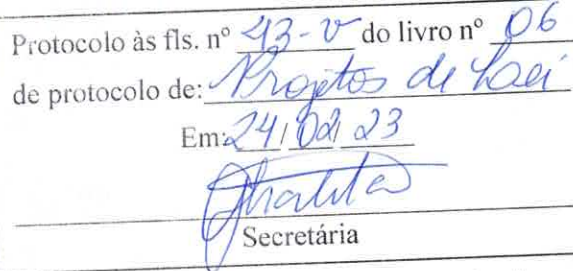 Protocolo às fls. nº 43-v do livro nº 06
de protocolo de: Projetos de Lei
Em: 24/02/23
Secretária